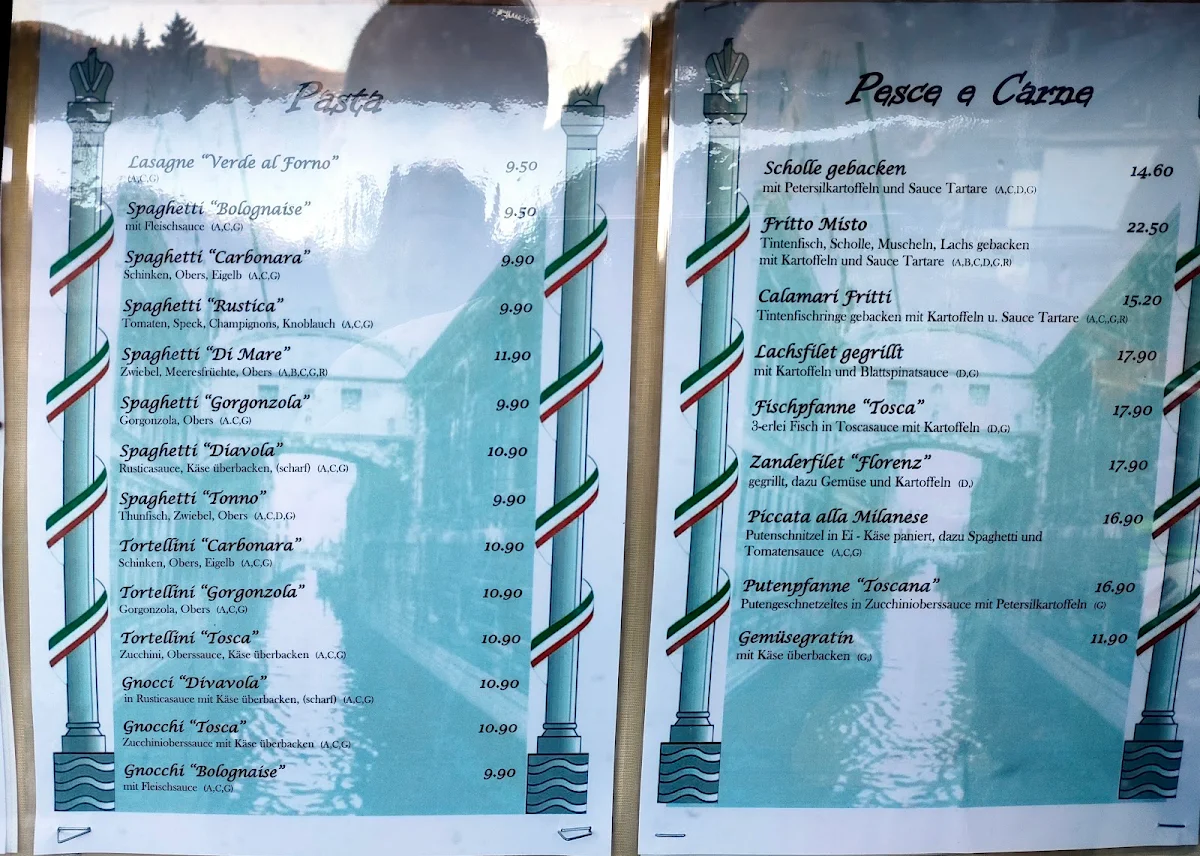 Pasta
Lasagne “Verde al Forno” 9.50
(A,C,G)
Spaghetti “Bolognaise” 9.50
mit Fleischsauce (A,C,G)
Spaghetti “Carbonara” 9.90
Schinken, Obers, Eigelb (A,C,G)
Spaghetti “Rustica” 9.90
Tomaten, Speck, Champignons, Knoblauch (A,C,G)
Spaghetti “Di Mare” 11.90
Zwiebel, Meeresfrüchte, Obers (A,B,C,G,R)
Spaghetti “Gorgonzola” 9.90
Gorgonzola, Obers (A,C,G)
Spaghetti “Diavola” 10.90
Rusticasauce, Käse überbacken, (scharf) (A,C,G)
Spaghetti “Tonno” 9.90
Thunfisch, Zwiebel, Obers (A,C,D,G)
Tortellini “Carbonara” 10.90
Schinken, Obers, Eigelb (A,C,G)
Tortellini “Gorgonzola” 10.90
Gorgonzola, Obers (A,C,G)
Tortellini “Tosca” 10.90
Zucchini, Oberssauce, Käse überbacken (A,C,G)
Gnocci “Divavola” 10.90
in Rusticasauce mit Käse überbacken, (scharf) (A,C,G)
Gnocchi “Tosca” 10.90
Zucchinioberssauce mit Käse überbacken (A,C,G)
Gnocchi “Bolognaise” 9.90
mit Fleischsauce (A,C,G)
Pesce e Carne
Scholle gebacken 14.60
mit Petersilkartoffeln und Sauce Tartare (A,C,D,G)
Fritto Misto 22.50
Tintenfisch, Scholle, Muscheln, Lachs gebacken
mit Kartoffeln und Sauce Tartare (A,B,C,D,G,R)
Calamari Fritti 15.20
Tintenfischringe gebacken mit Kartoffeln u. Sauce Tartare (A,C,,G,R)
Lachsfilet gegrillt 17.90
mit Kartoffeln und Blattspinatsauce (D,G)
Fischpfanne “Tosca” 17.90
3-erlei Fisch in Toscasauce mit Kartoffeln (D,G)
Zanderfilet “Florenz” 17.90
gegrillt, dazu Gemüse und Kartoffeln (D,)
Piccata alla Milanese 16.90
Putenschnitzel in Ei - Käse paniert, dazu Spaghetti und
Tomatensauce (A,C,G)
Putenpfanne “Toscana” 16.90
Putengeschnetzeltes in Zucchinioberssauce mit Petersilkartoffeln (G)
Gemüsegratin 11.90
mit Käse überbacken (G,)